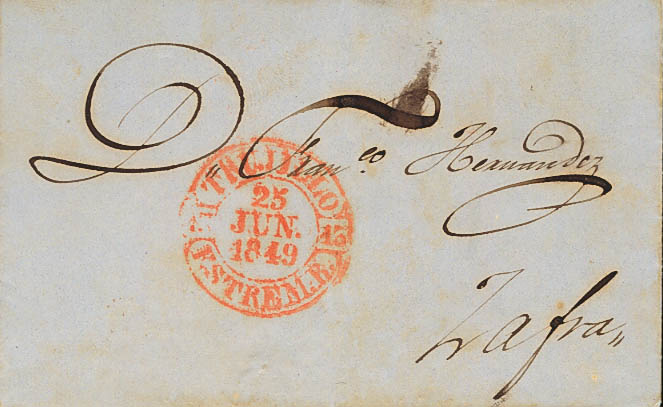 D.n Fran.co Hernandez
TRUJILLO
25
JUN.
1849
12
ESTREM. B.
Zafra